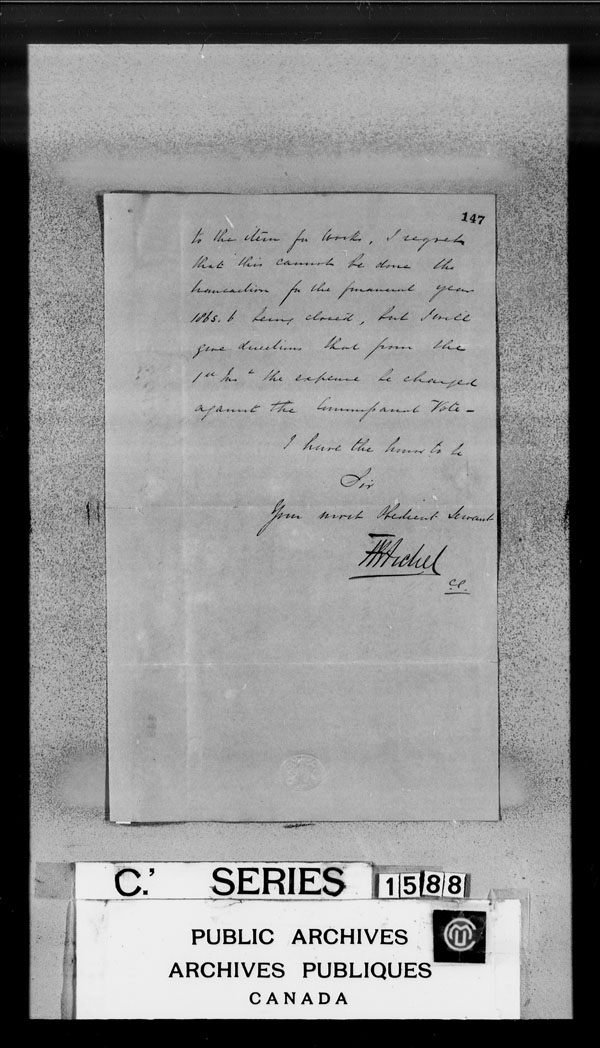 147
to the item for Works, I regret
that this cannot be done the
transaction for the financial year
1865.6 being closed, but I will
give directions that from the
1st Inst the expense be charged
against the Commissariat Vote —
I have the honor to be
Sir
Your most Obedient Servant
C.' SERIES 1588
PUBLIC ARCHIVES
ARCHIVES PUBLIQUES
CANADA